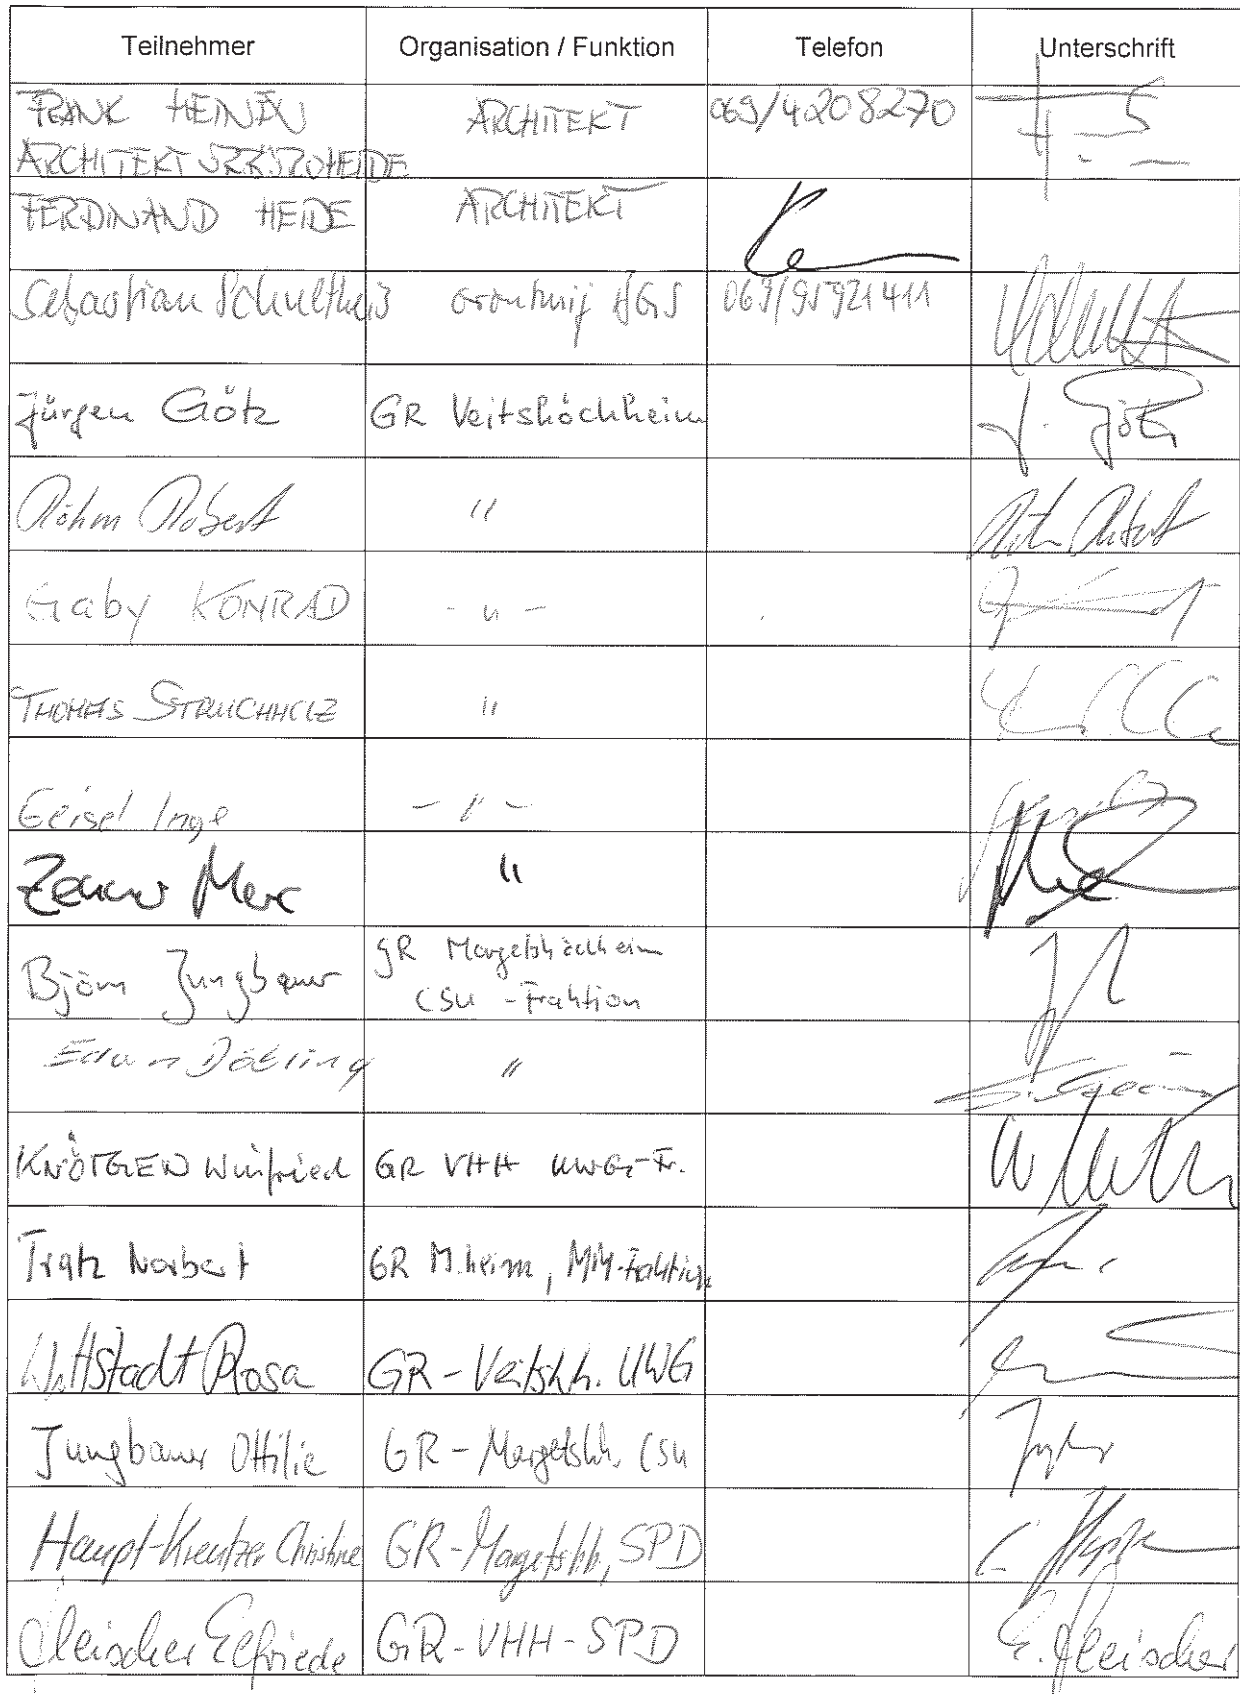 Teilnehmer Organisation / Funktion Telefon Unterschrift
FRANK HEINEN ARCHITEKT 069/4208270
ARCHITEKT HEIDE
FERDINAND HEIDE ARCHITEKT
Sebastian Schultheis BGS 069/95921411
Jürgen Götz GR Veitshöchheim J. Götz
Röhm Robert "
Gaby KONRAD - " -
THOMAS STRUCHHOLZ "
Geisel Inge - " -
Marc "
Björn Jungbauer GR Margetshöchheim
CSU -Fraktion
Döbling "
KNÖTGEN Winfried GR VHH UWG-Fr.
Tratz Norbert GR M.heim, MM-Fraktion
Wittstadt Rosa GR-Veitshh. UWG
Jungbauer Ottilie GR-Margetshh. CSU
Haupt-Kreutzer Christine GR-Margetshh, SPD
Fleischer Elfriede GR-VHH-SPD E. Fleischer